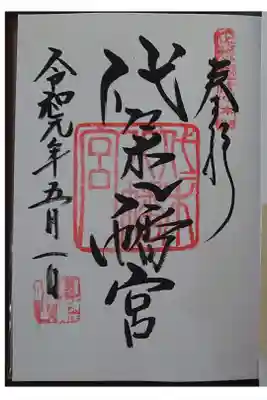 奉拝
代々木八幡宮
令和元年五月一日